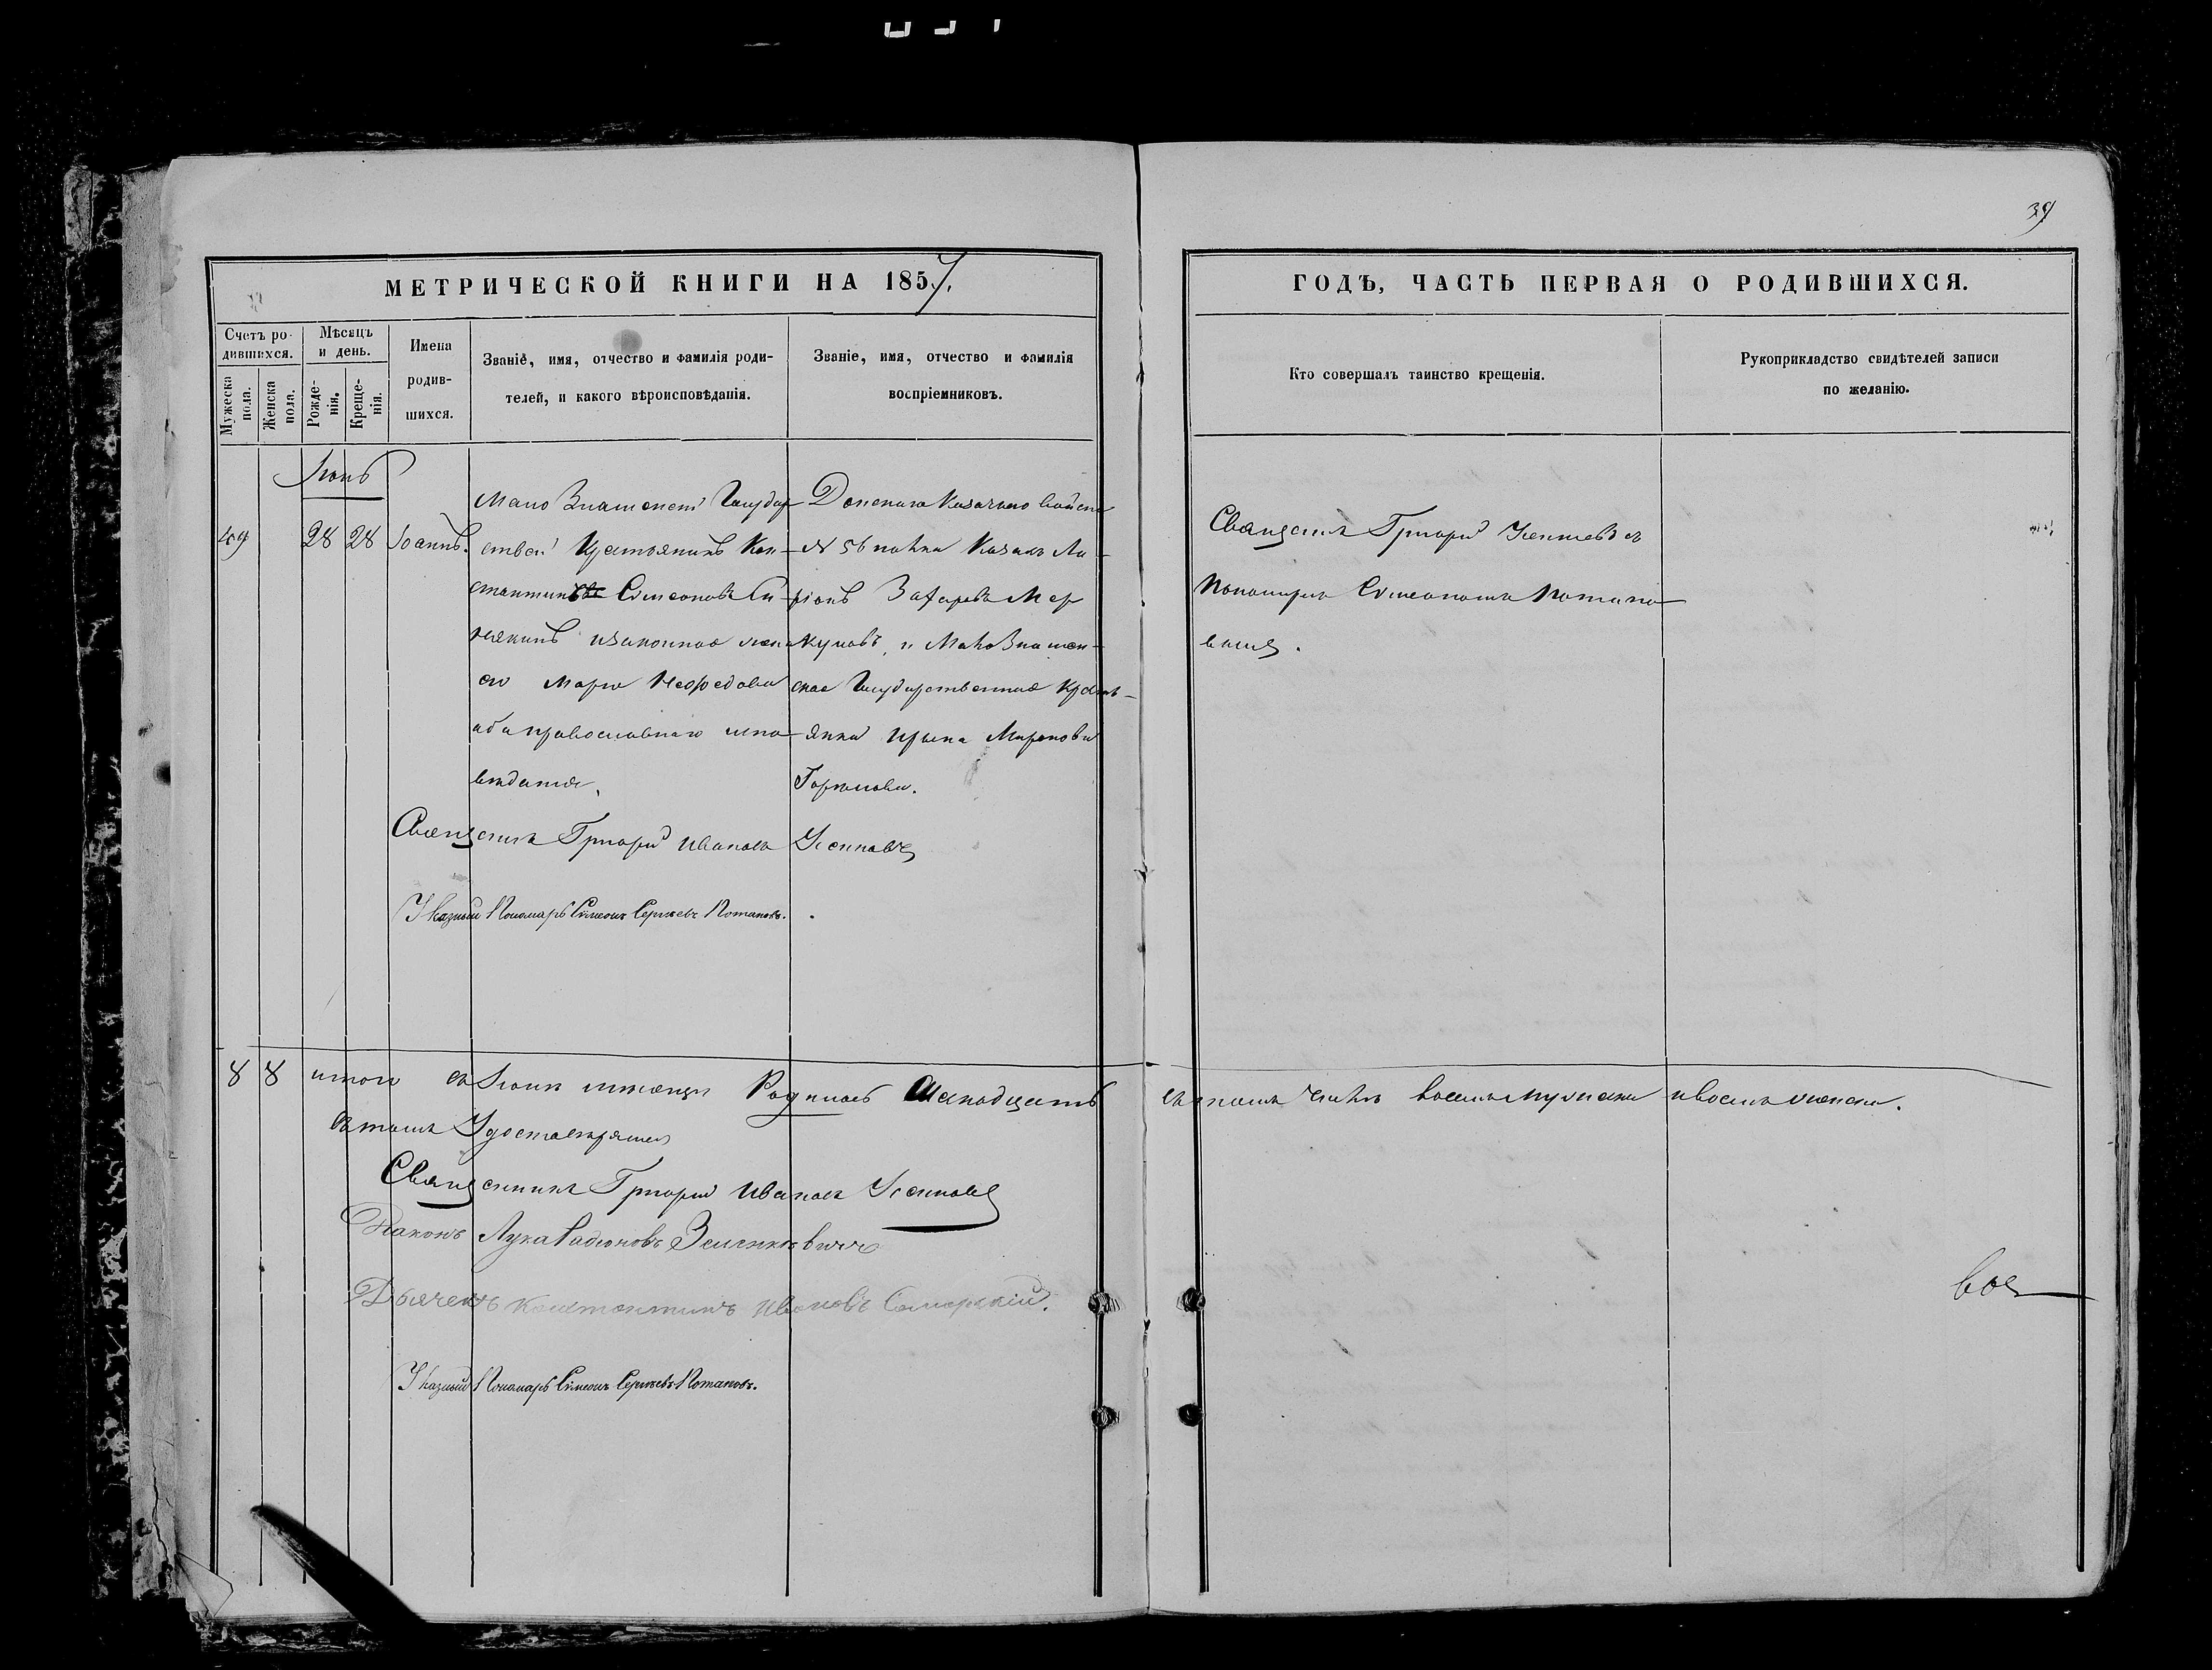 39
МЕТРИЧЕСКОЙ КНИГИ НА 1857.
ГОДЪ, ЧАСТЬ ПЕРВАЯ О РОДИВШИХСЯ.
Счетъ родившихся.
Мужеска пола.
Женска пола.
Мѣсяцъ и день.
Рожденія.
Крещенія.
Имена родившихся.
Званіе, имя, отчество и фамилія родителей, и какого вѣроисповѣданія.
Званіе, имя, отчество и фамилія воспріемниковъ.
Кто совершалъ таинство крещенія.
Рукоприкладство свидѣтелей записи по желанію.
Іюнь
49 28 28 Іоаннъ.
Мало Знаменск Государ
ствен Крестьянинъ Кон
стантинъ Симеоновъ
изаконная жена
его Марія Неофедова
оба православнаго испо
веданія.
Донскаго Казачьяго войска
N 56 полка Казакъ Ла
ріонъ Захаровъ Мер
куловъ, и МалоЗнамен
ская Государственная Кресть
янка Ирина Миронова
Священникъ Григорій
Пономаремъ Симеономъ Потапо
вымъ.
Священникъ Григорій Ивановъ
Указный Пономарь Симеонъ Сергѣевъ Потаповъ.
8 8 итого въ Іюнѣ месяцѣ Родилось Шеснадцать
въ томъ числѣ восемъ мужска и восемъ женска.
въ томъ Удостовѣряемъ
Священникъ Григорій Ивановъ
Діаконъ Лука Радіоновъ
Дьячекъ Константинъ Ивановъ Самарскій.
Указный Пономарь Симеонъ Сергѣевъ Потаповъ.